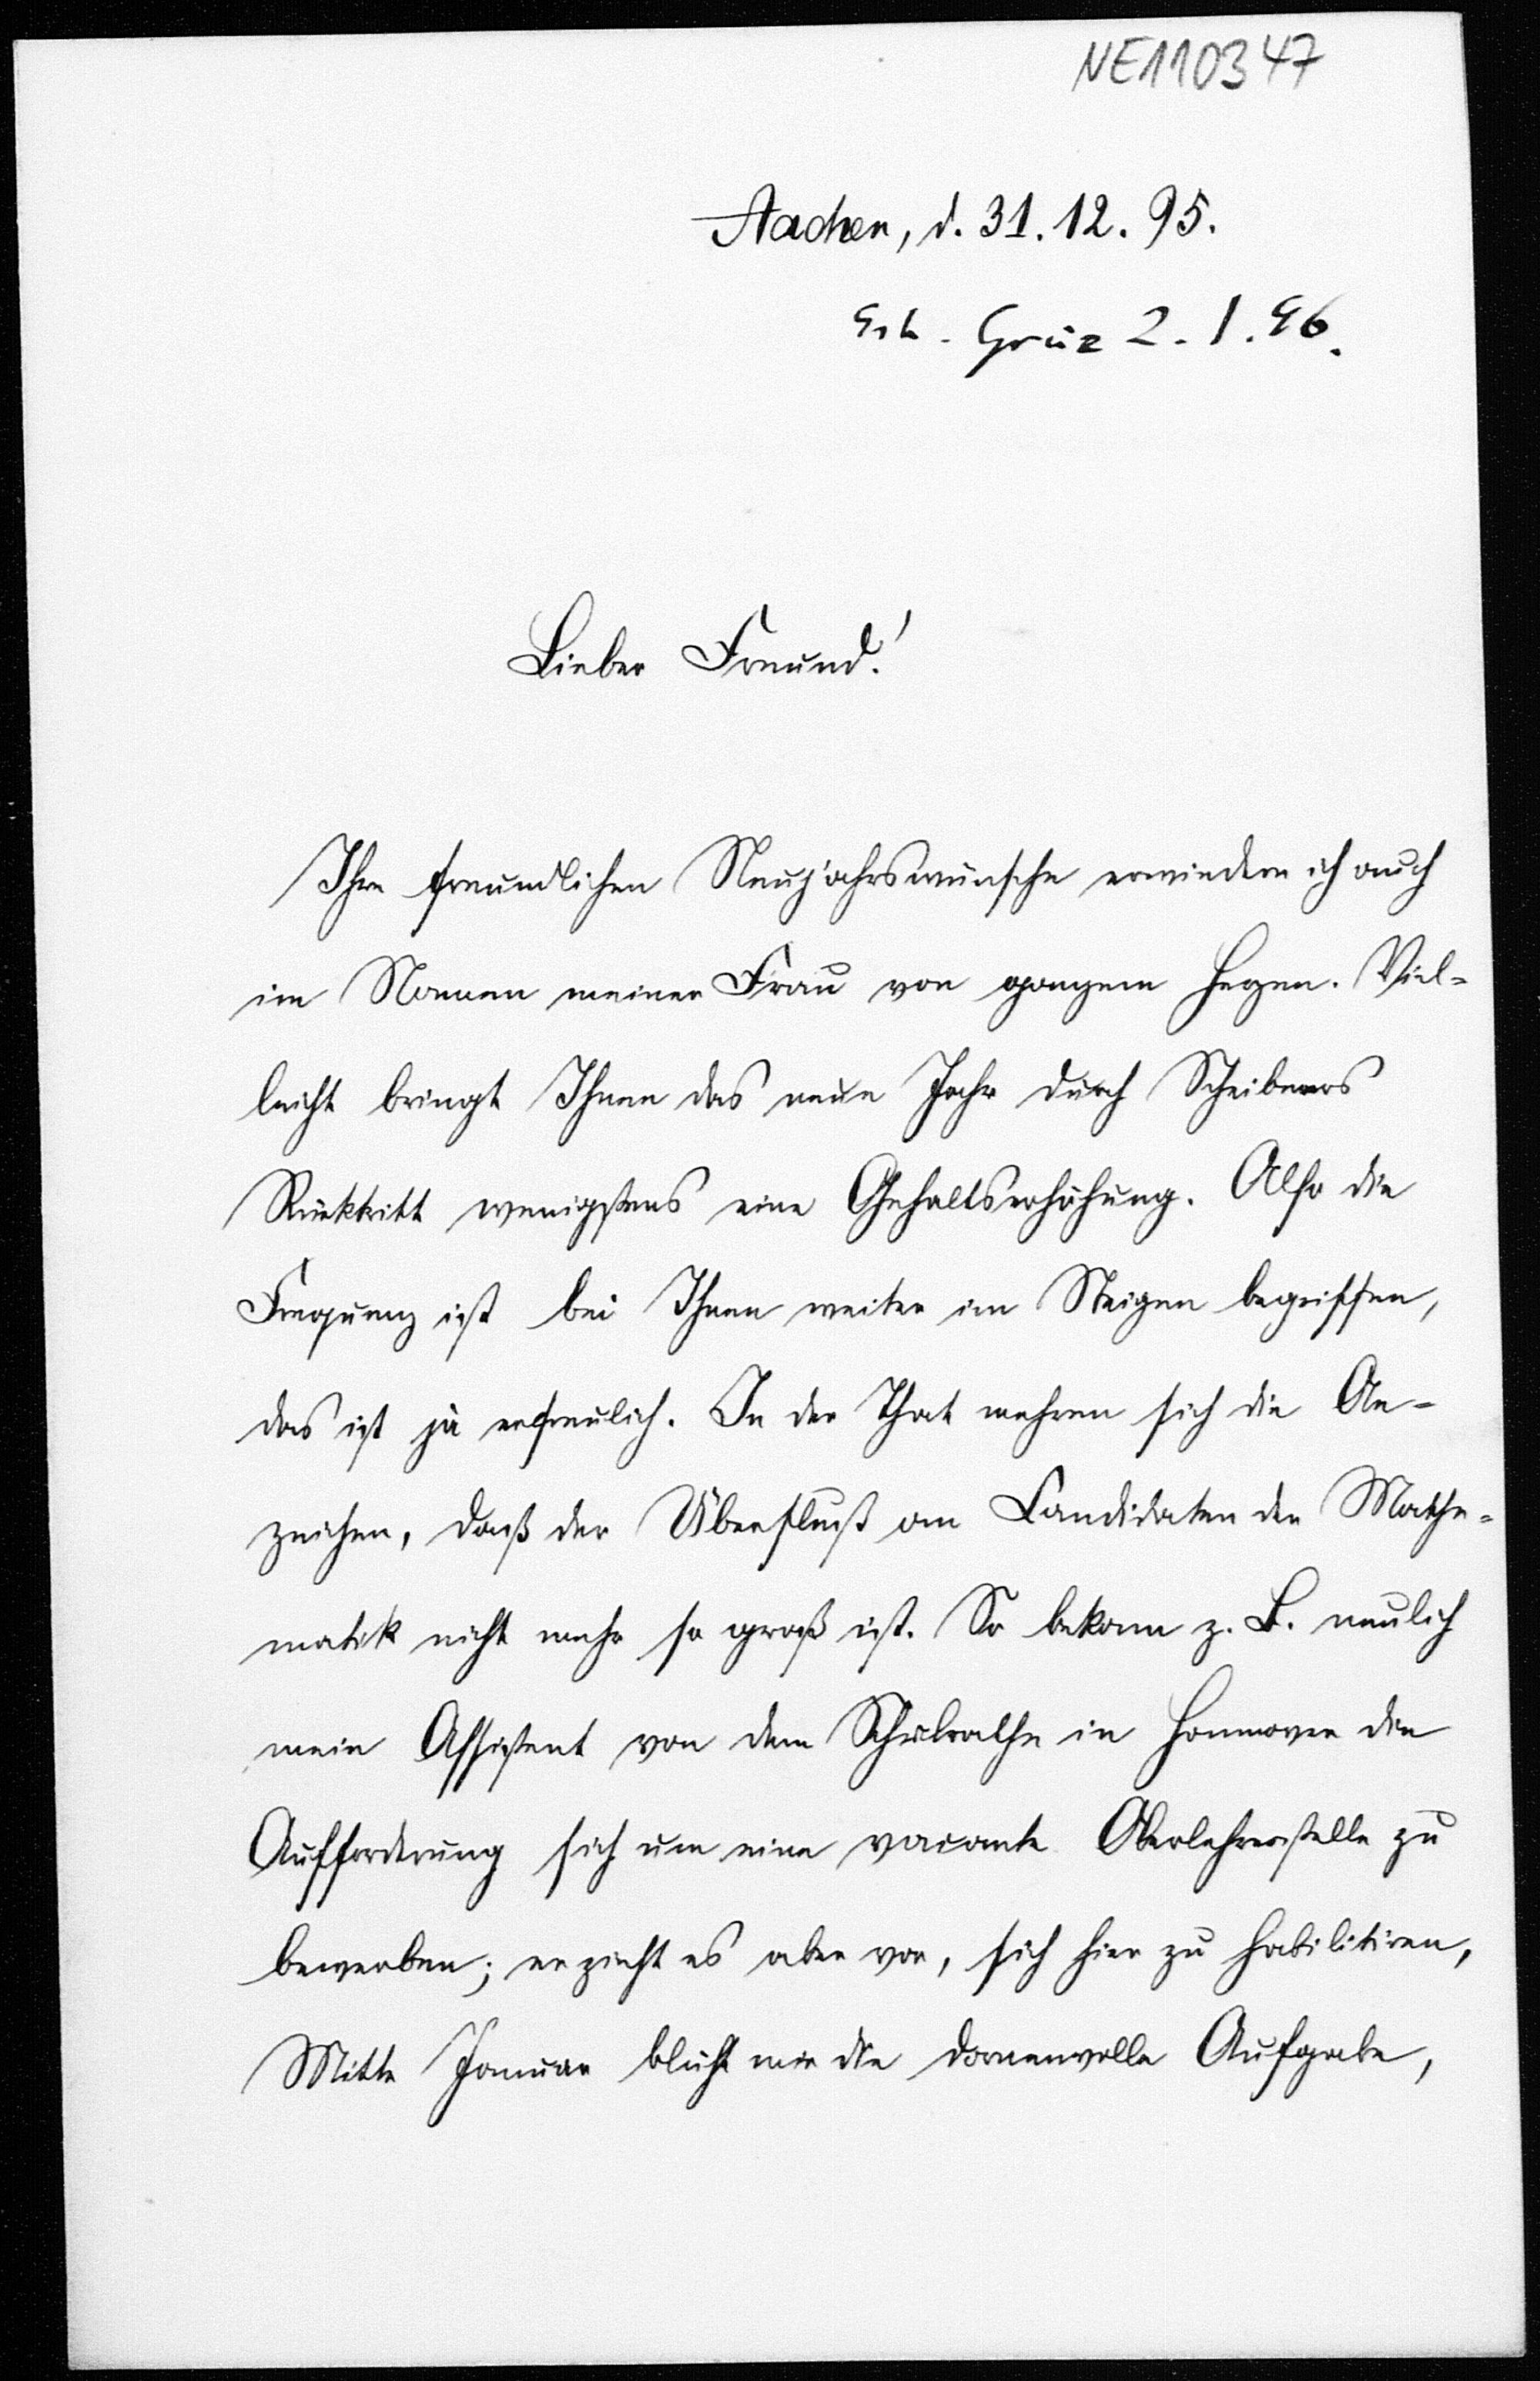 NE110347
Aachen, d. 31. 12. 95.
Erh. Greiz 2. 1. 96.
Lieber Freund!
Ihre freundlichen Neujahrswünsche erwiedere ich auch
im Namen meiner Frau von ganzem Herzen. Viel-
leicht bringt Ihnen das neue Jahr durch Scheibners
Rücktritt wenigstens eine Gehaltserhöhung. Also die
Frequenz ist bei Ihnen weiter im Steigen begriffen,
das ist ja erfreulich. In der That mehren sich die An-
zeichen, daß der Überfluß an Candidaten der Mathe-
matik nicht mehr so groß ist. So bekam z. B. neulich
mein Assistent von dem Schulrathe in Hannover die
Aufforderung sich um eine vacante Oberlehrerstelle zu
bewerben; er zieht es aber vor, sich hier zu habilitiren,
Mitte Januar blüht mir die dornenvolle Aufgabe,